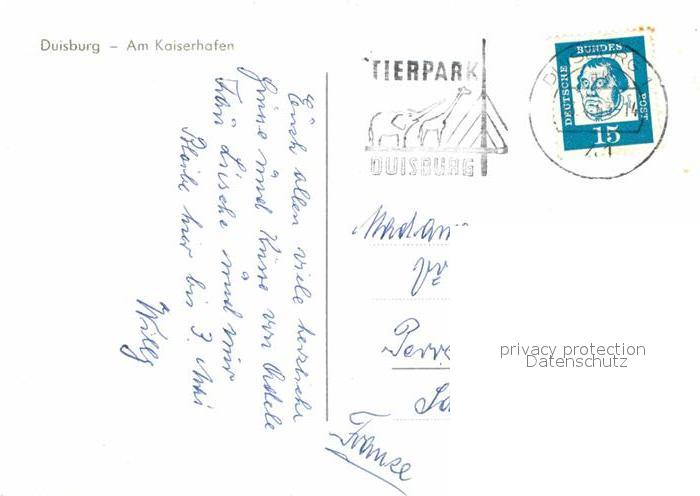 Duisburg – Am Kaiserhafen
TIERPARK
DUISBURG
DEUTSCHE BUNDESPOST
15
DUISBURG 1
Euch allen viele herzliche
Grüße und Küsse von Adele
Frau Lusche und mir
Bleibe hier bis 3. Mai
Willy
Madam
Perre
France
privacy protection
Datenschutz